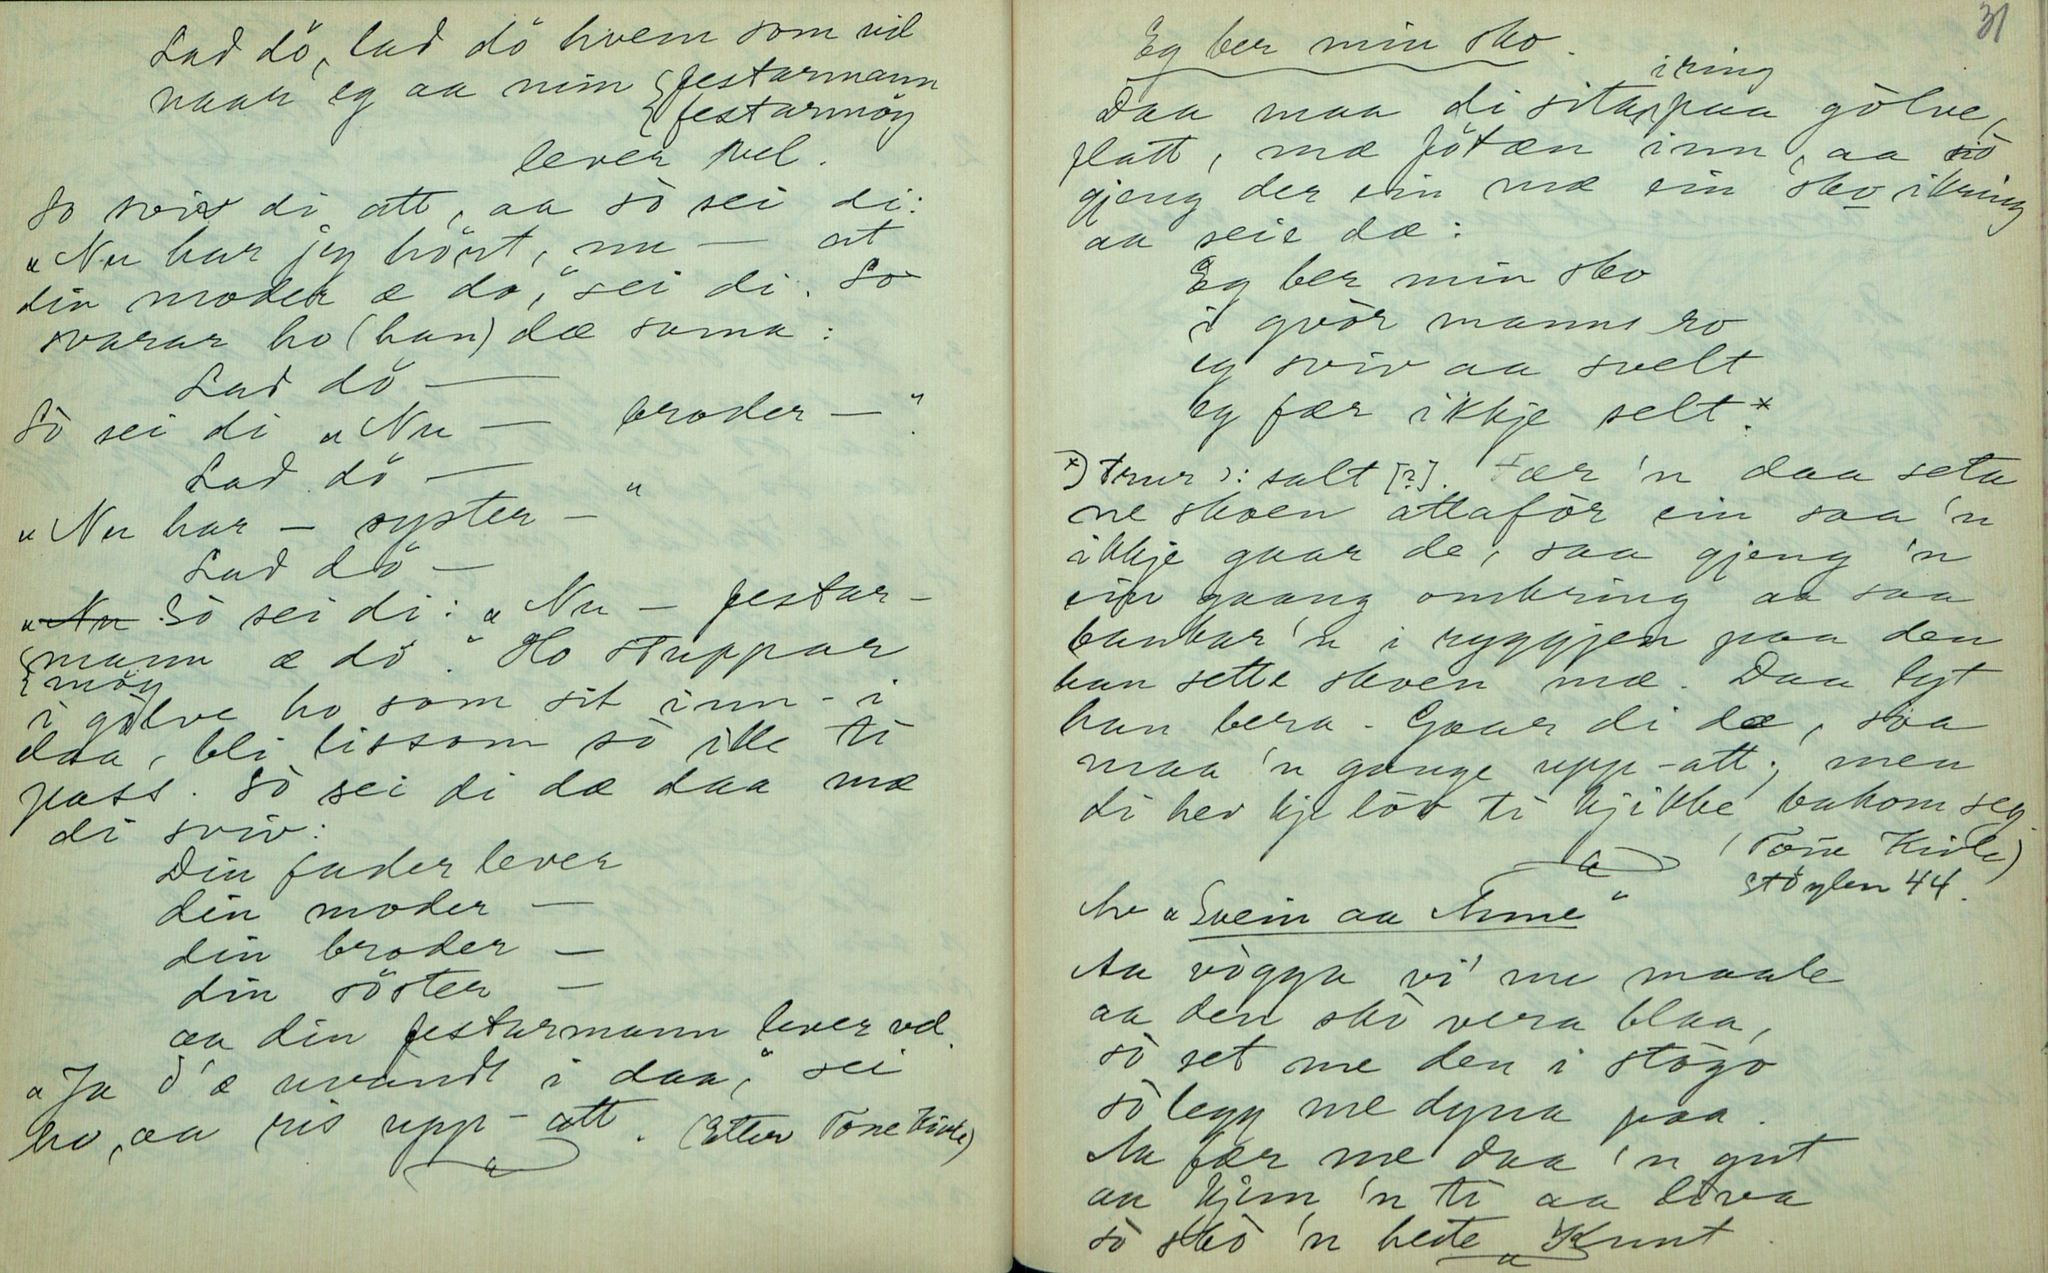 Lad dö, lad dö hvem som vil
naar eg aa min { festarmann
{ festarmöy
lever vel.
So sviv di att, aa sò sei di:
„Nu har jeg hört, nu — at
din moder æ dö," sei di. So
svarar ho (han) dæ sama:
Lad dö —
Sò sei di „Nu — broder —".
Lad dö —
„Nu har — syster — "
Lad dö —
„Nu Sò sei di: „Nu — festar-
{ mann æ dö." Ho stuppar
{ möy
i gòlve ho som sit inn-i
daa, bli lissom sò ille ti
pass. Sò sei di dæ daa mæ
di sviv:
Din fader lever
din moder —
din broder —
din söster —
aa din festarmann lever vel.
„Ja d'æ uvandt i daa," sei
ho, aa ris upp-att. (Etter Tone Kivle)
31
Eg ber min sko.
iring
Daa maa di sita paa gòlve,
flatt, mæ fötæn inn, aa sò
gjeng der ein mæ ein sko ikring
aa seie dæ:
Eg ber min sko
i qvòr manns ro
eg sviv aa svelt
eg fær ikkje selt.*
*) trur ɔ: salt [?]. Fær 'n daa seta
ne skoen attafòr ein saa 'n
ikkje gaar de, saa gjeng 'n
ein gaang omkring aa saa
bankar 'n i ryggjen paa den
han sette skoen mæ. Daa lyt
han bera. Gaar di dæ, saa
maa 'n gange upp-att; men
di hev kje lòv ti kjikke bakom seg.
(Tone Kivle)
Støylen 44.
Av „Svein aa Anne"
Aa vògga vi' me maale
aa den skò vera blaa,
sò set me den i stògo
sò legg me dyna paa.
Aa fær me daa 'n gut
aa kjem 'n ti aa liva
sò skò 'n heite Knut.